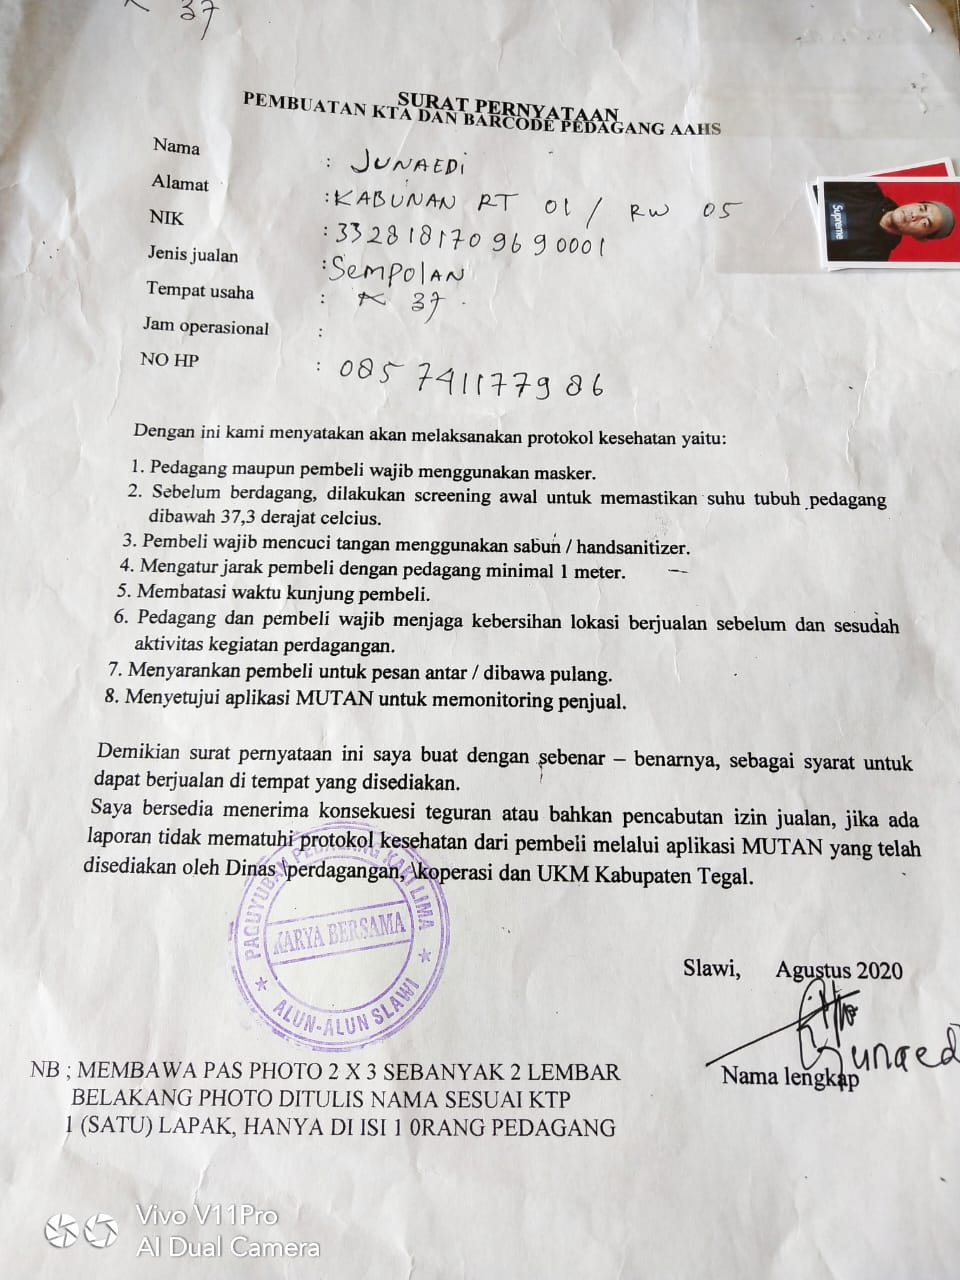 K 37
SURAT PERNYATAAN
PEMBUATAN KTA DAN BARCODE PEDAGANG AAHS
Nama : JUNAEDi
Alamat : KABUNAN RT 01 / RW 05
NIK : 3328181709690001
Jenis jualan : SEMPOLAN
Tempat usaha : K 37
Jam operasional :
NO HP : 085 741177986
Supreme
Dengan ini kami menyatakan akan melaksanakan protokol kesehatan yaitu:
1. Pedagang maupun pembeli wajib menggunakan masker.
2. Sebelum berdagang, dilakukan screening awal untuk memastikan suhu tubuh pedagang
dibawah 37,3 derajat celcius.
3. Pembeli wajib mencuci tangan menggunakan sabun / handsanitizer.
4. Mengatur jarak pembeli dengan pedagang minimal 1 meter.
5. Membatasi waktu kunjung pembeli.
6. Pedagang dan pembeli wajib menjaga kebersihan lokasi berjualan sebelum dan sesudah
aktivitas kegiatan perdagangan.
7. Menyarankan pembeli untuk pesan antar / dibawa pulang.
8. Menyetujui aplikasi MUTAN untuk memonitoring penjual.
Demikian surat pernyataan ini saya buat dengan sebenar – benarnya, sebagai syarat untuk
dapat berjualan di tempat yang disediakan.
Saya bersedia menerima konsekuesi teguran atau bahkan pencabutan izin jualan, jika ada
laporan tidak mematuhi protokol kesehatan dari pembeli melalui aplikasi MUTAN yang telah
disediakan oleh Dinas \perdagangan, \koperasi dan UKM Kabupaten Tegal.
PAGUYUBAN PEDAGANG KAKI LIMA
KARYA BERSAMA
ALUN-ALUN SLAWI
Slawi, Agustus 2020
Junaedi
Nama lengkap
NB ; MEMBAWA PAS PHOTO 2 X 3 SEBANYAK 2 LEMBAR
BELAKANG PHOTO DITULIS NAMA SESUAI KTP
1 (SATU) LAPAK, HANYA DI ISI 1 0RANG PEDAGANG
Vivo V11Pro
AI Dual Camera